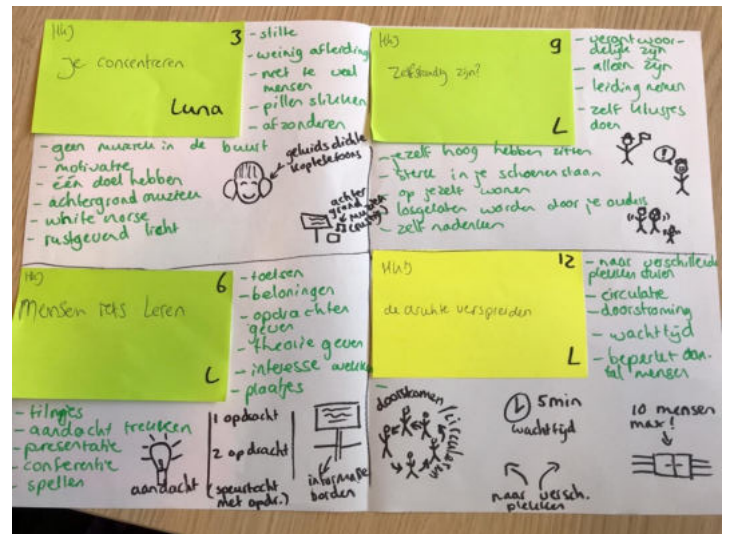 HKJ
3
je concentreren
Luna
- stilte
- weinig afleiding
- niet te veel
mensen
- pillen slikken
- afzonderen
- geen muziek in de buurt
- motivatie
- één doel hebben
- achtergrond muziek
- white noise
- rustgevend licht
geluids dichte
koptelefoons
achter
grond
muziek
(rustig)
HKJ
9
Zelfstandig zijn?
L
- verantwoor-
delijk zijn
- alleen zijn
- leiding nemen
- zelf klusjes
doen
- jezelf hoog hebben zitten
- sterk in je schoenen staan
- op jezelf wonen
- losgelaten worden door je ouders
- zelf nadenken
HKJ
6
Mensen iets leren
L
- toetsen
- beloningen
- opdrachten
geven
- theorie geven
- interesse wekken
- plaatjes
- filmpjes
- aandacht trekken
- presentatie
- conferentie
- spellen
aandacht
1 opdracht
2 opdracht
(speurtocht
met opdr.)
informatie
borden
HKJ
12
de drukte verspreiden
L
- naar verschillende
plekken sturen
- circulatie
- doorstroming
- wachttijd
- beperkt aan-
tal mensen
doorstromen
circuleren
5 min
wachttijd
naar versch.
plekken
10 mensen
max!